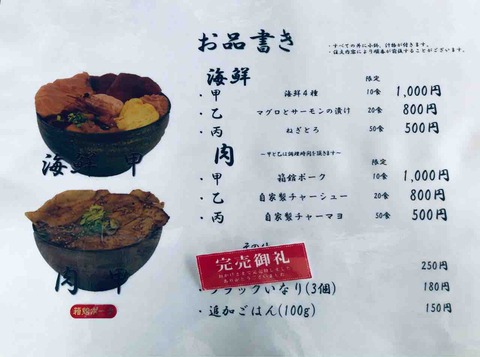 お品書き
・すべての丼に小鉢、汁物が付きます。
海鮮
限定
・甲 海鮮4種 10食 1,000円
・乙 マグロとサーモンの漬け 20食 800円
・丙 ねぎとろ 50食 500円
肉
ー甲と乙は調理時間を頂きますー
限定
・甲 箱舘ポーク 10食 1,000円
・乙 自家製チャーシュー 20食 800円
・丙 自家製チャーマヨ 50食 500円
250円
ブラックいなり(3個) 180円
・追加ごはん(100g) 150円
完売御礼
海鮮 甲
肉 甲